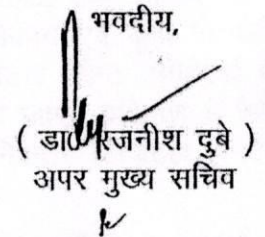 भवदीय,
( डा0 रजनीश दुबे )
अपर मुख्य सचिव